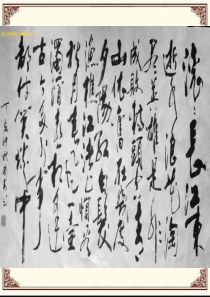 滚滚长江东
逝水浪花淘
尽英雄是非
成败转头空青
山依旧在几度
夕阳红白发
渔樵江渚上惯看
秋月春风一壶
浊酒喜相逢
古今多少事
都付笑谈中
丁亥